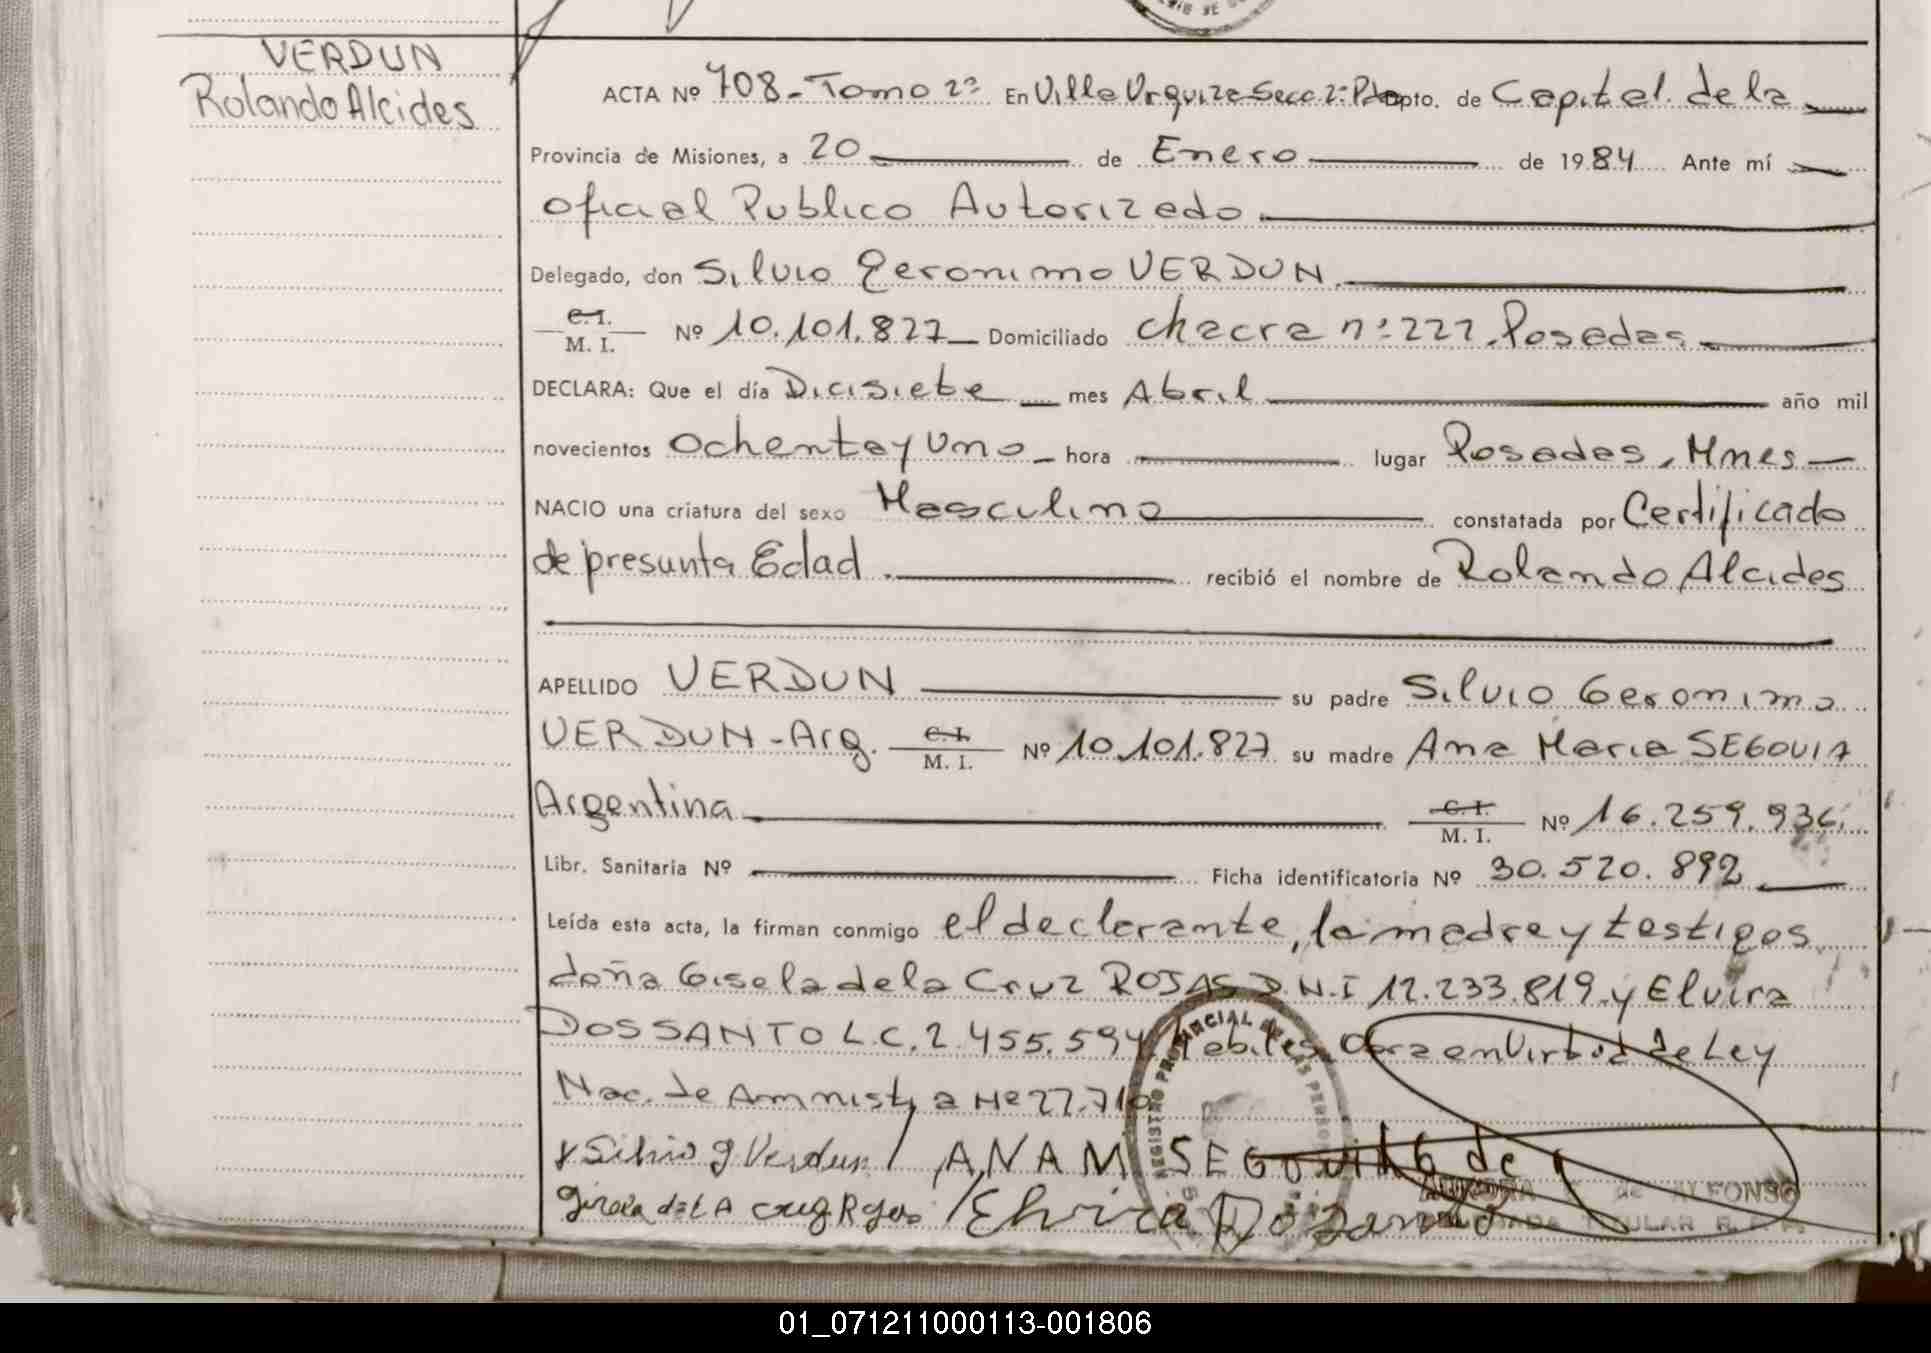 VERDUN
Rolando Alcides
ACTA Nº 708 - Tomo 2º En Villa Urquiza Secc 2º Pdas Dpto. de Capital de la
Provincia de Misiones, a 20 de Enero de 1984 Ante mí
Oficial Publico Autorizado
Delegado, don Silvio Geronimo VERDUN
C.I.
M. I. Nº 10.101.827 Domiciliado chacra nº 227 Posadas
DECLARA: Que el día Dicisiete mes Abril año mil
novecientos Ochenta y Uno hora lugar Posadas, Mnes
NACIO una criatura del sexo Masculino constatada por Certificado
de presunta Edad recibió el nombre de Rolando Alcides
APELLIDO VERDUN su padre Silvio Geronimo
VERDUN - Arg. C.I. M. I. Nº 10.101.827 su madre Ana Maria SEGOVIA
Argentina C.I. M. I. Nº 16.259.936
Libr. Sanitaria Nº Ficha identificatoria Nº 30.520.892
Leída esta acta, la firman conmigo el declarante, la madre y testigos
doña Gisela de la Cruz ROJAS D.N.I 12.233.819 y Elvira
DOS SANTO L.C. 2.455.594 Habiles Obra en Virtud de Ley
Nac. de Amnistia Nº 22.710
x Silvio g Verdun / ANA M SEGOVIA de
de la cruz Rojas / Elvira Do Santo
REGISTRO PROVINCIAL DE LAS PERSONAS
de ALFONSO
TITULAR R.P.P.
01_071211000113-001806